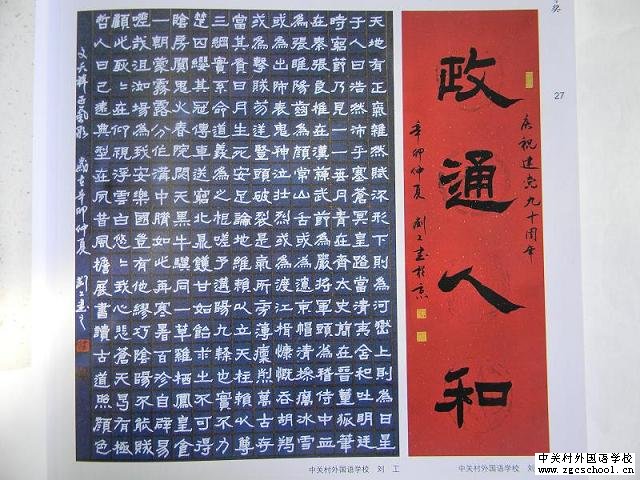 慶祝建党九十周年
政通人和
辛卯仲夏 劉工書於京
天地有正氣雜然賦流形下則為河嶽上則為日星
于人曰浩然沛乎塞蒼冥皇路當清夷含和吐明廷
時窮節乃見一一垂丹青在齊太史簡在晉董狐筆
在秦張良椎在漢蘇武節為嚴將軍頭為嵇侍中血
為張睢陽齒為顏常山舌或為遼東帽清操厲冰雪
或為出師表鬼神泣壯烈或為渡江楫慷慨吞胡羯
或為擊賊笏逆豎頭破裂是氣所旁薄凜烈萬古存
當其貫日月生死安足論地維賴以立天柱賴以尊
三綱實系命道義為之根嗟予遘陽九隸也實不力
楚囚纓其冠傳車送窮北鼎鑊甘如飴求之不可得
陰房闃鬼火春院閟天黑牛驥同一皂雞棲鳳凰食
一朝蒙霧露分作溝中瘠如此再寒暑百沴自辟易
嗟哉沮洳場為我安樂國豈有他繆巧陰陽不能賊
顧此耿耿在仰視浮雲白悠悠我心悲蒼天曷有極
哲人日已遠典型在夙昔風檐展書讀古道照顏色
文天祥正氣歌 歲在辛卯仲夏 劉工書
27
中关村外国语学校 刘 工
中关村外国语学校 刘
中关村外国语学校
www.zgcschool.cn